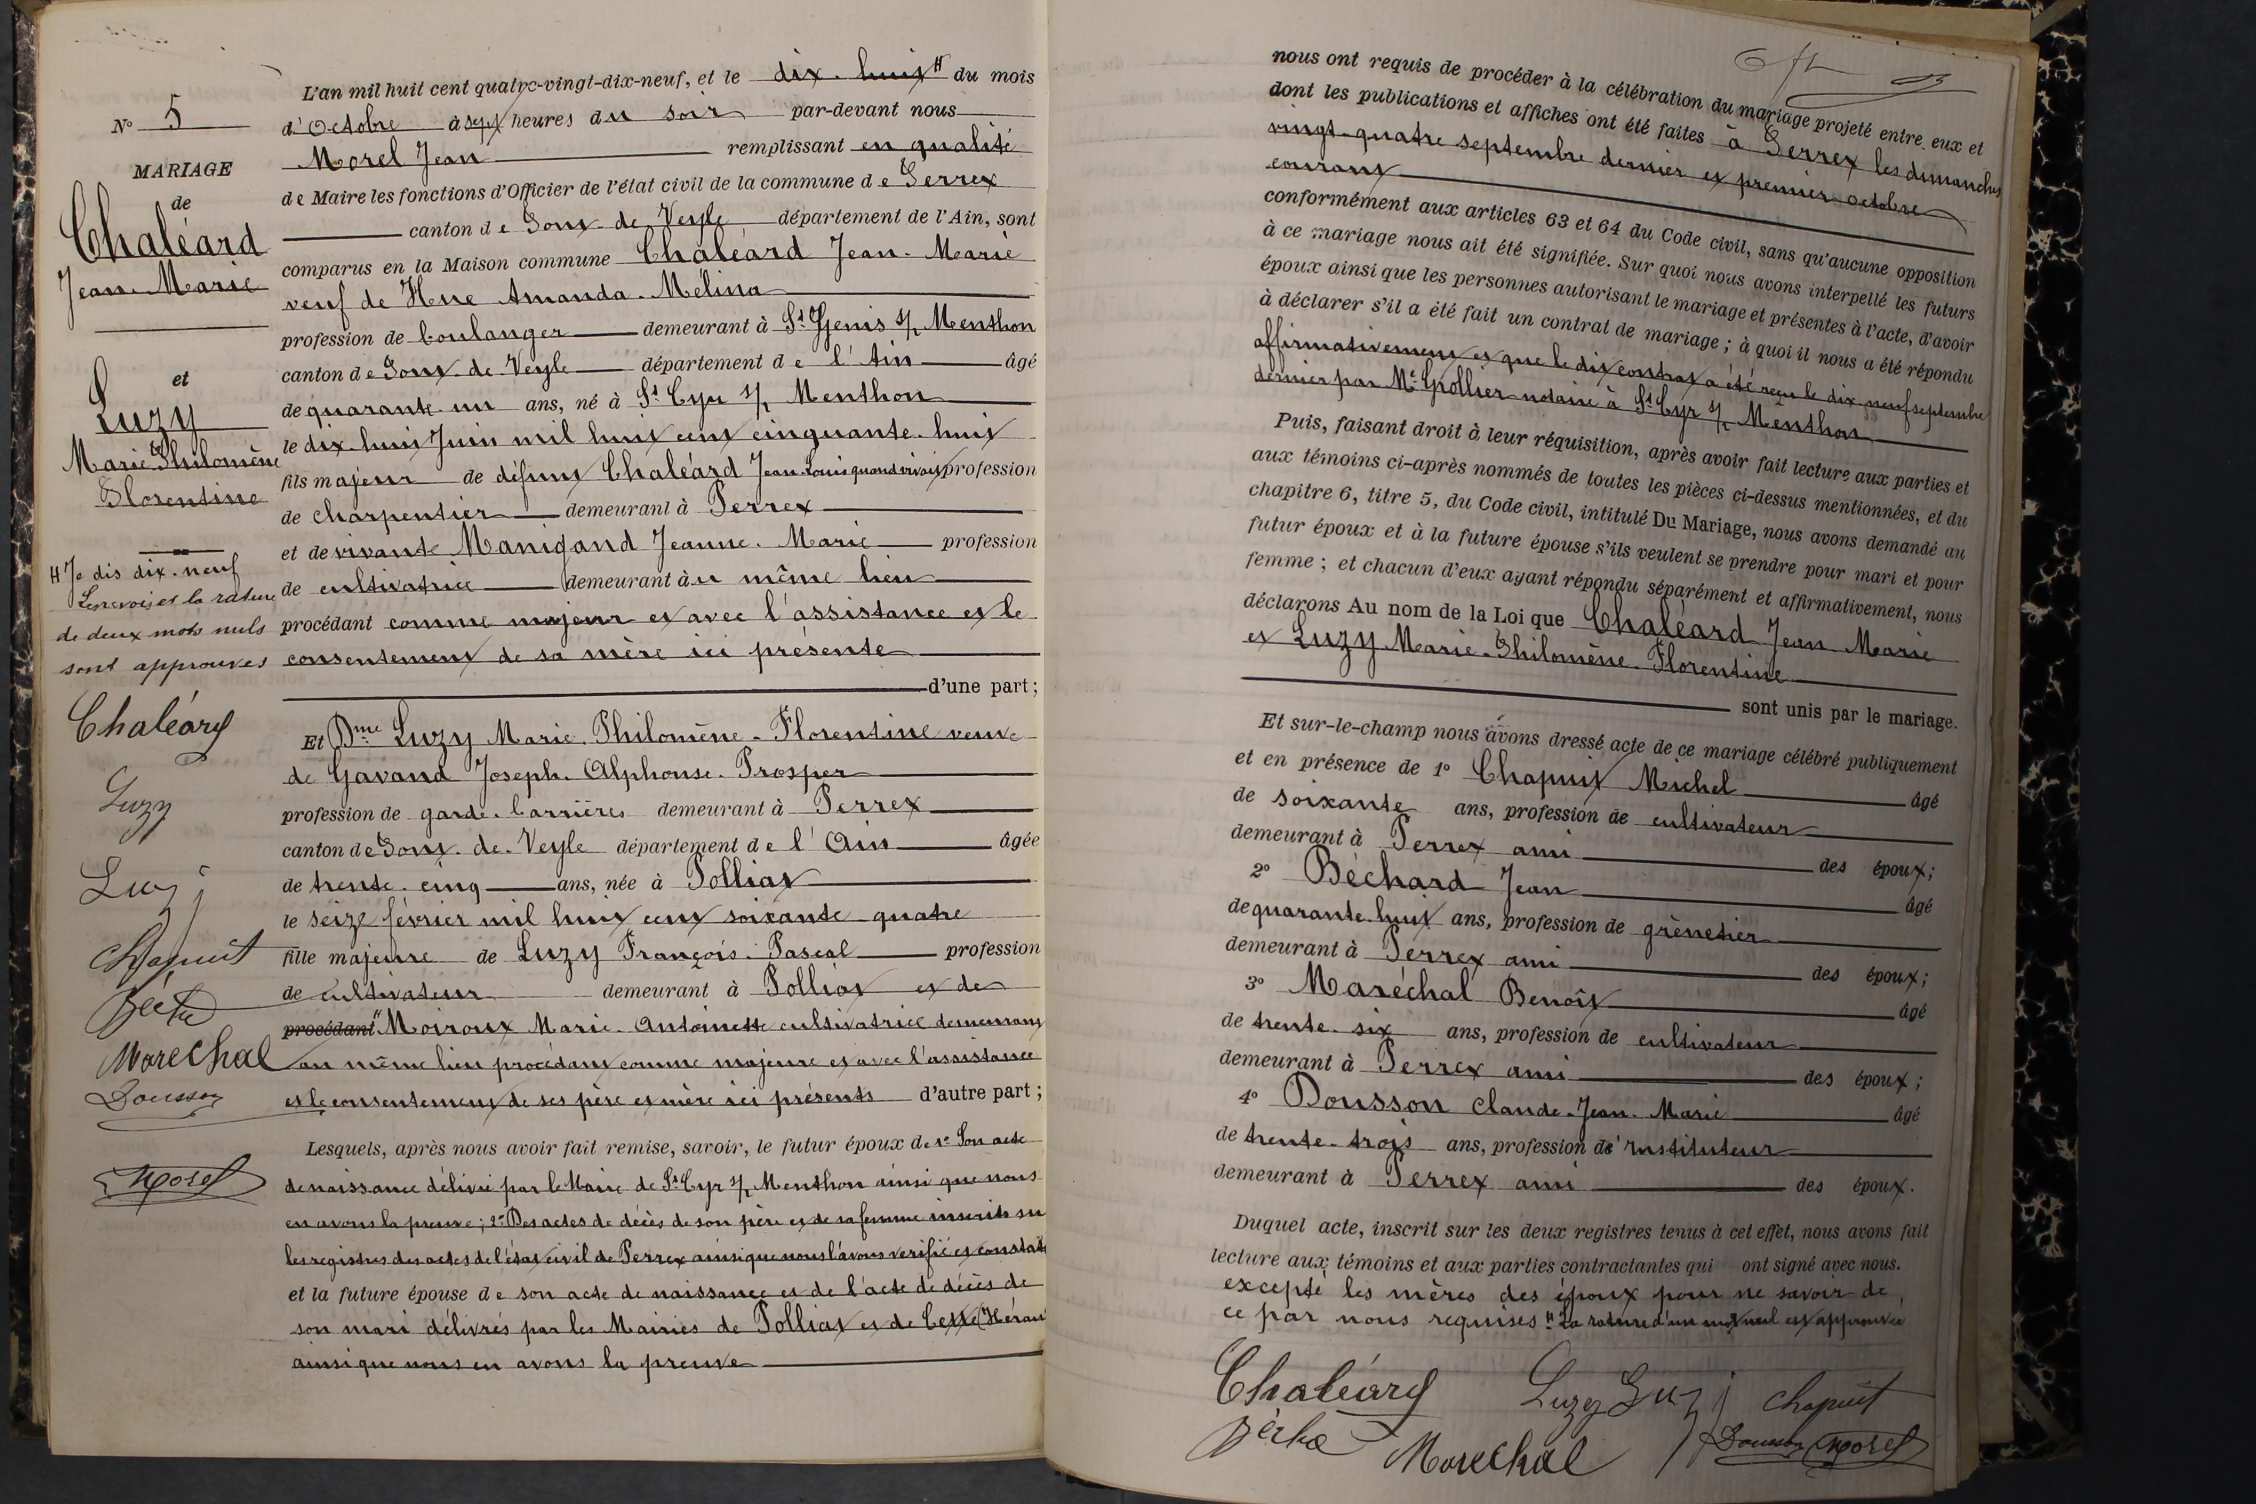 N° 5
MARIAGE
de
Chaléard
Jean-Marie
et
Luzy
Marie Philomène
Florentine
H Je dis dix-neuf
Le renvoi et la rature
de deux mots nuls
sont approuvés
Chaléard
Luzy
Luzy
Chapuit
Maréchal
Dousson
Morel
L'an mil huit cent quatre-vingt-dix-neuf, et le dix-huit H du mois
d'Octobre à sept heures du soir par-devant nous
Morel Jean remplissant en qualité
de Maire les fonctions d'Officier de l'état civil de la commune de Perrex
canton de Pont-de-Veyle département de l'Ain, sont
comparus en la Maison commune Chaléard Jean-Marie
veuf de Hue Amanda-Mélina
profession de boulanger demeurant à St Genis s/ Menthon
canton de Pont-de-Veyle département de l'Ain âgé
de quarante-un ans, né à St Cyr s/ Menthon
le dix-huit Juin mil huit cent cinquante-huit
fils majeur de défunt Chaléard Jean-Louis quand vivait profession
de charpentier demeurant à Perrex
et de vivante Manigand Jeanne-Marie profession
de cultivatrice demeurant au même lieu
procédant comme majeur et avec l'assistance et le
consentement de sa mère ici présente
d'une part;
Et Dme Luzy Marie-Philomène-Florentine veuve
de Gavand Joseph-Alphonse-Prosper
profession de garde-barrières demeurant à Perrex
canton de Pont-de-Veyle département de l'Ain âgée
de trente-cinq ans, née à Polliat
le seize février mil huit cent soixante-quatre
fille majeure de Luzy François-Pascal profession
de cultivateur demeurant à Polliat et de
procédant " Moiroux Marie-Antoinette cultivatrice demeurant
au même lieu procédant comme majeure et avec l'assistance
et le consentement de ses père et mère ici présents d'autre part;
Lesquels, après nous avoir fait remise, savoir, le futur époux de 1° Son acte
de naissance délivré par le Maire de St Cyr s/ Menthon ainsi que nous
en avons la preuve; 2° Des actes de décès de son père et de sa femme inscrits sur
les registres des actes de l'état civil de Perrex ainsi que nous l'avons vérifié et constaté
et la future épouse de son acte de naissance et de l'acte de décès de
son mari délivrés par les Mairies de Polliat et de Cette (Hérault
ainsi que nous en avons la preuve
nous ont requis de procéder à la célébration du mariage projeté entre eux et
dont les publications et affiches ont été faites à Perrex les dimanches
vingt-quatre septembre dernier et premier octobre
courant
conformément aux articles 63 et 64 du Code civil, sans qu'aucune opposition
à ce mariage nous ait été signifiée. Sur quoi nous avons interpellé les futurs
époux ainsi que les personnes autorisant le mariage et présentes à l'acte, d'avoir
à déclarer s'il a été fait un contrat de mariage; à quoi il nous a été répondu
affirmativement et que le dit contrat a été reçu le dix-neuf septembre
dernier par Me Grollier notaire à St Cyr s/ Menthon
Puis, faisant droit à leur réquisition, après avoir fait lecture aux parties et
aux témoins ci-après nommés de toutes les pièces ci-dessus mentionnées, et du
chapitre 6, titre 5, du Code civil, intitulé Du Mariage, nous avons demandé au
futur époux et à la future épouse s'ils veulent se prendre pour mari et pour
femme; et chacun d'eux ayant répondu séparément et affirmativement, nous
déclarons Au nom de la Loi que Chaléard Jean Marie
et Luzy Marie-Philomène-Florentine
sont unis par le mariage.
Et sur-le-champ nous avons dressé acte de ce mariage célébré publiquement
et en présence de 1° Chapuit Michel âgé
de soixante ans, profession de cultivateur
demeurant à Perrex ami des époux;
2° Béchard Jean âgé
de quarante-huit ans, profession de grènetier
demeurant à Perrex ami des époux;
3° Maréchal Benoît âgé
de trente-six ans, profession de cultivateur
demeurant à Perrex ami des époux;
4° Dousson Claude-Jean-Marie âgé
de trente-trois ans, profession d'Instituteur
demeurant à Perrex ami des époux.
Duquel acte, inscrit sur les deux registres tenus à cet effet, nous avons fait
lecture aux témoins et aux parties contractantes qui ont signé avec nous.
excepté les mères des époux pour ne savoir de
ce par nous requises " La rature d'un mot nul est approuvée
Chaléard Luzy Luzy Chapuit
Maréchal Dousson Morel